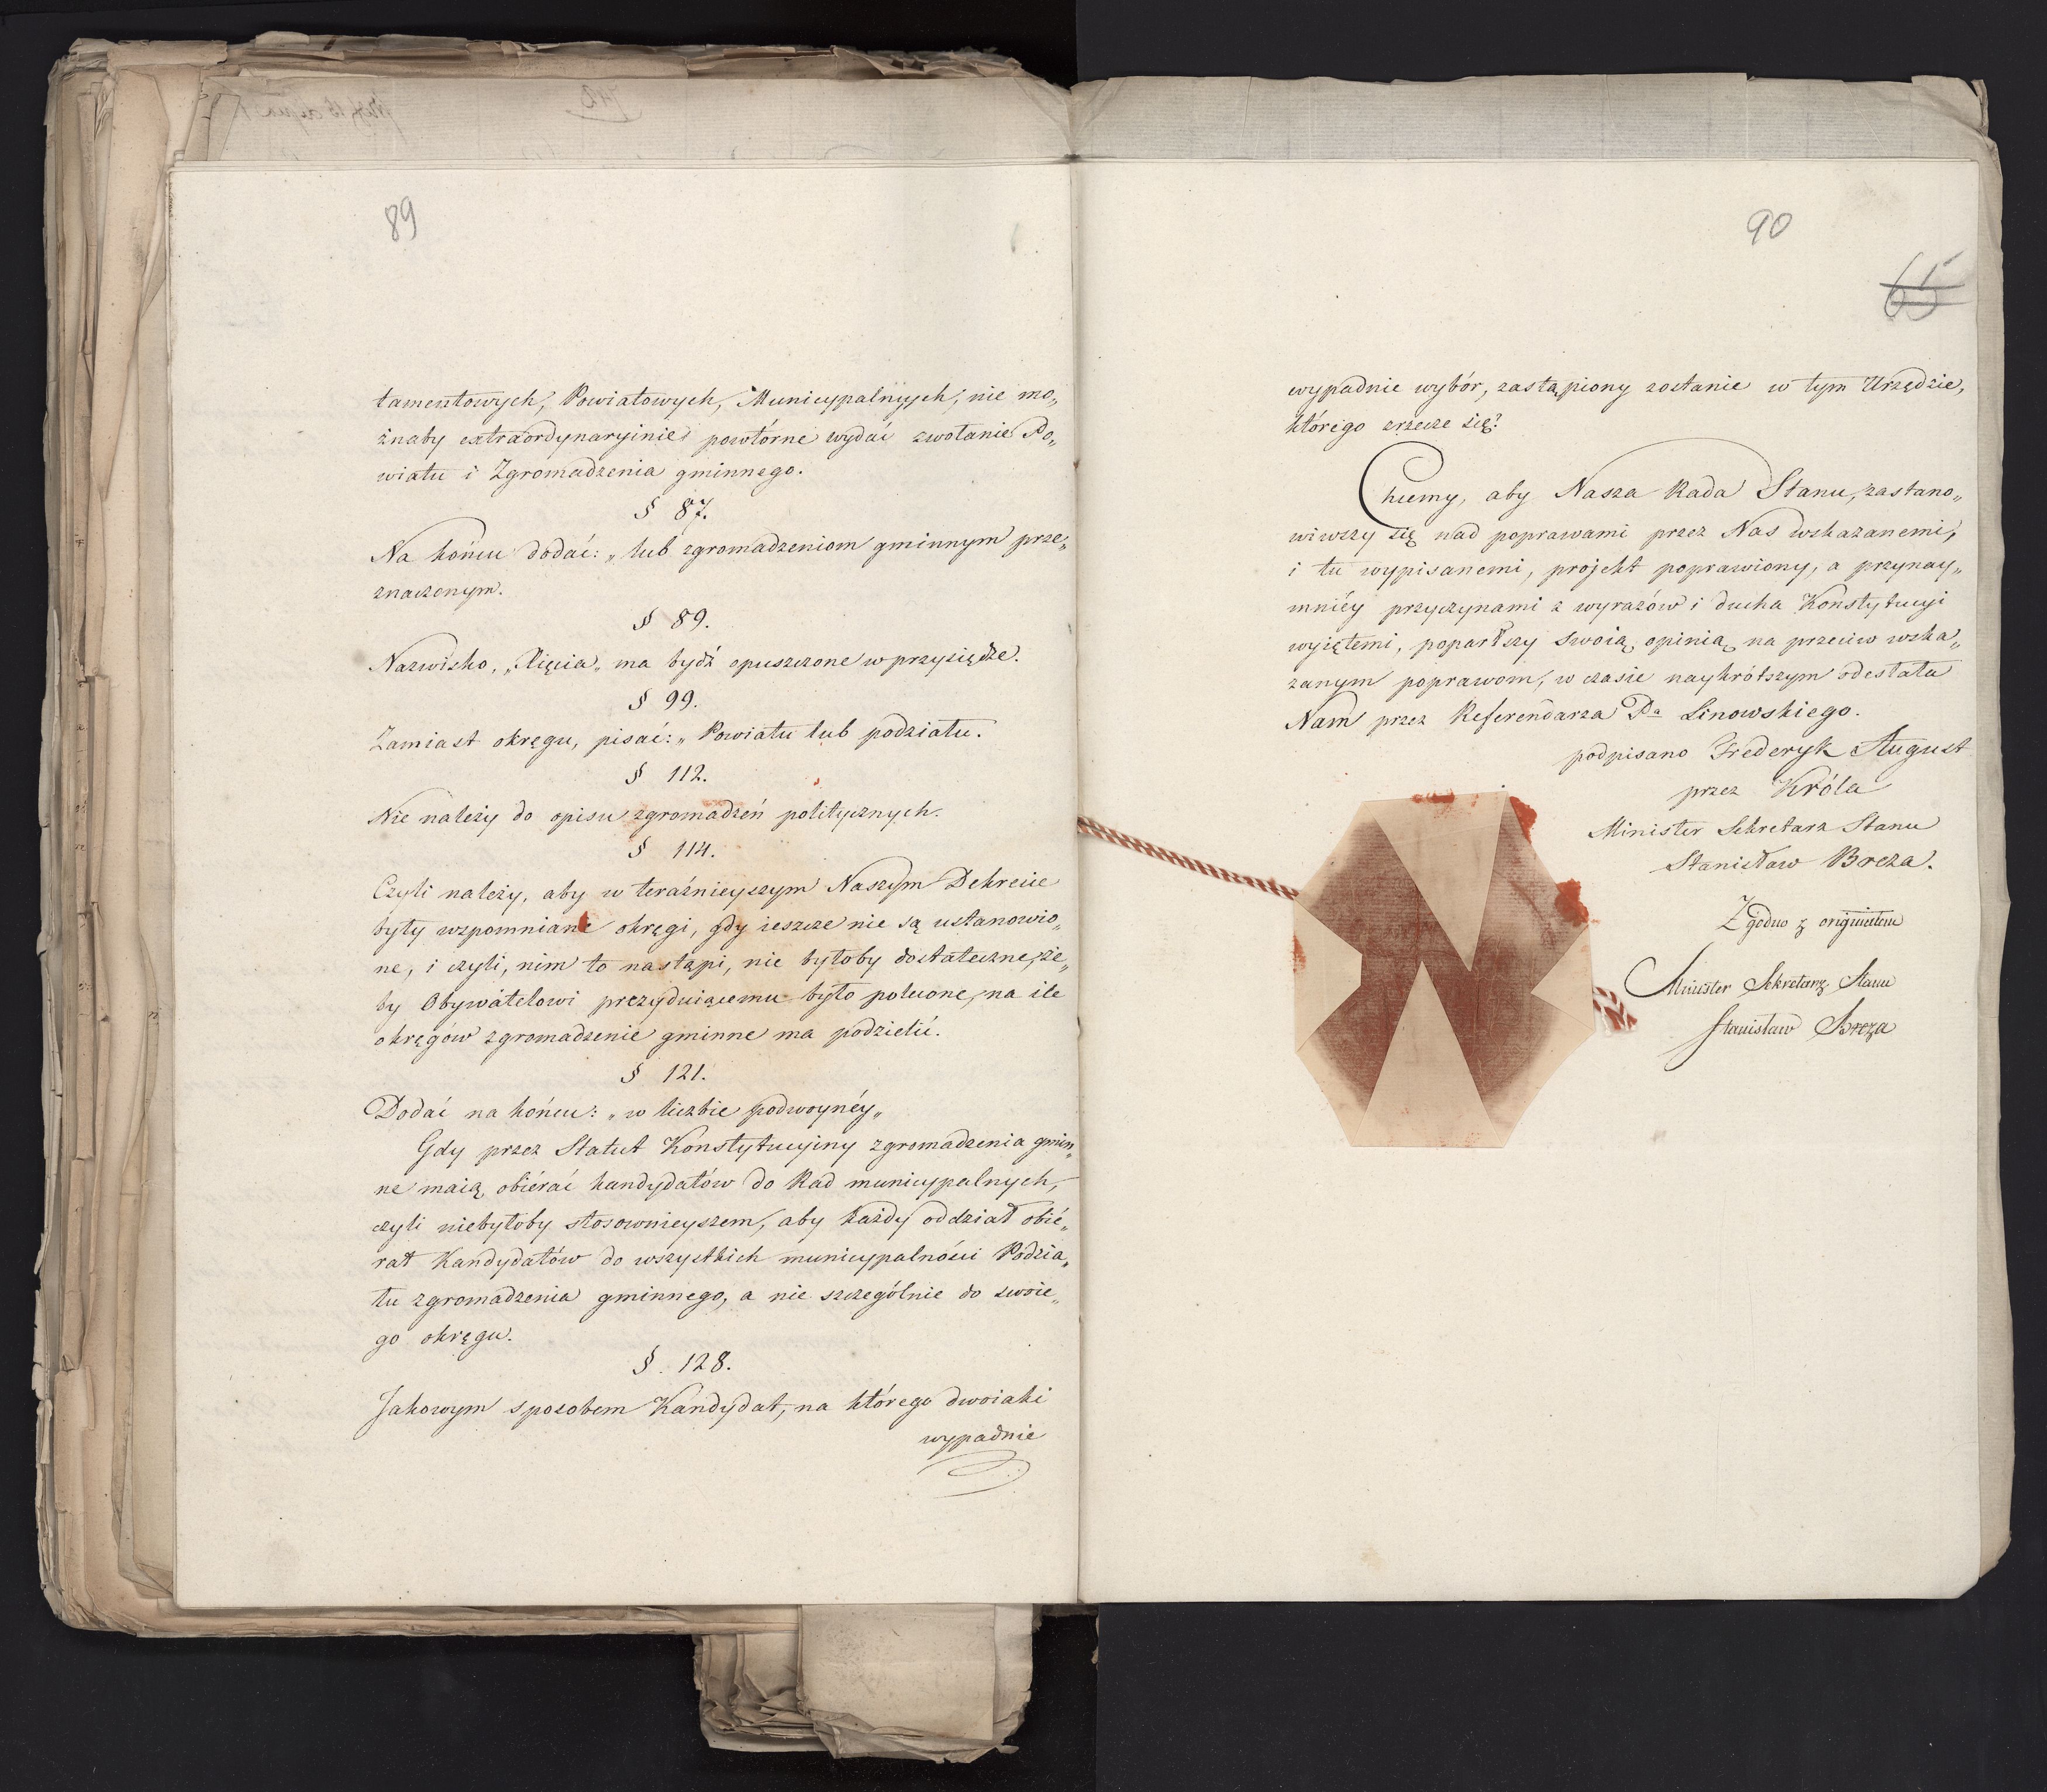 89
tamentowych, Powiatowych, Municypalnych, nie mo„
żnaby extraordynaryinie powtórne wydać zwołanie Po„
wiatu i Zgromadzenia gminnego.
§ 87.
Na końcu dodać: „lub zgromadzeniom gminnym prze„
znaczonym.
§ 89.
Nazwisko, „Xięcia„ ma bydź opuszczone w przysiędze.
§ 99.
Zamiast okręgu, pisać: „Powiatu lub podziału.
§ 112.
Nie należy do opisu zgromadzeń politycznych.
§ 114.
Czyli należy, aby w teraźnieyszym Naszym Dekrecie
były wzpomniane okręgi, gdy ieszcze nie są ustanowio„
ne, i czyli, nim to nastąpi, nie byłoby dostateczne, że„
by Obywatelowi prezyduiącemu było polecone, na ile
okręgów zgromadzenie gminne ma podzielić.
§ 121.
Dodać na końcu: „w liczbie podwoynéy„
Gdy przez Statut Konstytucyiny zgromadzenia gmin„
ne maią obiérać kandydatów do Rad municypalnych,
czyli niebyłoby stosownieyszem, aby każdy oddział obié„
rał Kandydatów do wszystkich municypalności Podzia„
łu zgromadzenia gminnego, a nie szczególnie do swoie„
go okręgu.
§. 128.
Jakowym sposobem Kandydat, na którego dwoiaki
wypadnie
90
65
wypadnie wybór, zastąpiony zostanie w tym Urzędzie,
którego zrzecze się?
Chcemy, aby Nasza Rada Stanu, zastano„
wiwszy się nad poprawami przez Nas wskazanemi,
i tu wypisanemi, projekt poprawiony, a przynay„
mniéy przyczynami z wyrazów i ducha Konstytucyi
wyiętemi, poparłszy swoią opinią na przeciw wska„
zanym poprawom, w czasie naykrótszym odesłała
Nam przez Referendarza Pa Linowskiego.
podpisano Frederyk August
przez Króla
Minister Sekretarz Stanu
Stanisław Breza.
Zgodno z originałem
Minister Sekretarz Stanu
Stanisław Breza